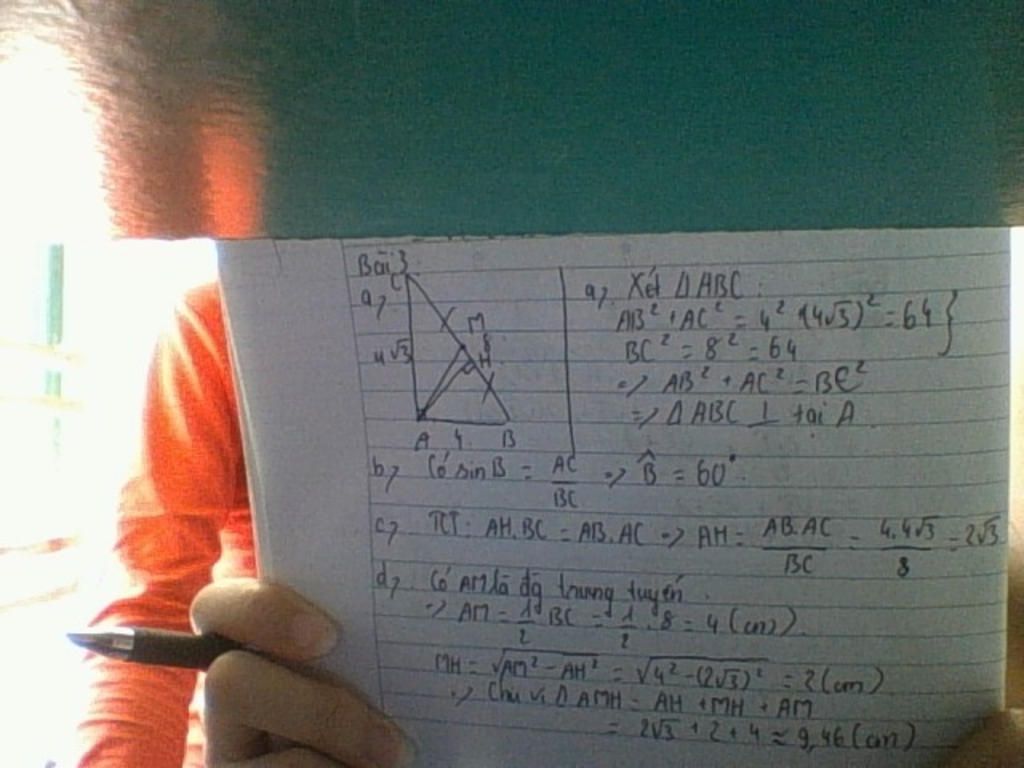 Bài 3
a,
C
M
8
H
4√3
A 4 B
a, Xét ΔABC:
AB² + AC² = 4² + (4√3)² = 64 }
BC² = 8² = 64
=> AB² + AC² = BC²
=> ΔABC ⊥ tại A
b, Có sin B = AC/BC => B̂ = 60°.
c, TCT: AH.BC = AB.AC => AH = AB.AC/BC = 4.4√3/8 = 2√3
d, Có AM là đg trung tuyến.
=> AM = 1/2 BC = 1/2 . 8 = 4 (cm).
MH = √(AM² - AH²) = √(4² - (2√3)²) = 2 (cm)
=> Chu vi ΔAMH = AH + MH + AM
= 2√3 + 2 + 4 ≈ 9,46 (cm)